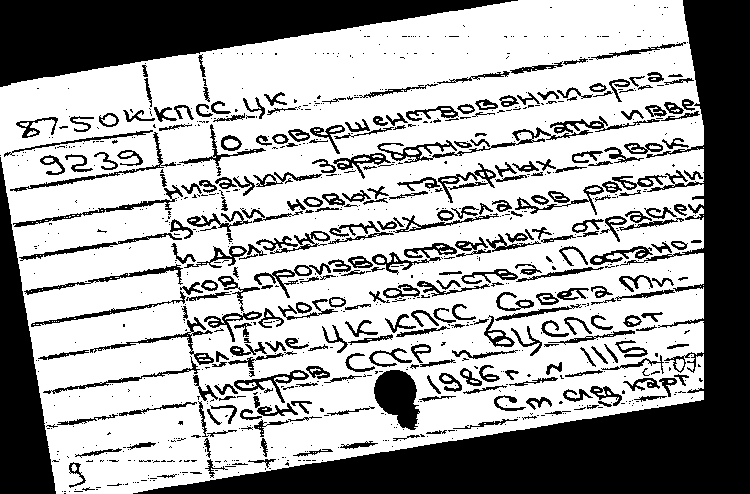 87-50К КПСС. ЦК.
9239 О совершенствовании орга-
низации заработной платы и вве
дении новых тарифных ставок
и должностных окладов работни
ков производственных отраслей
народного хозяйства: Постано-
вление ЦК КПСС, Совета Ми-
нистров СССР и ВЦСПС от
17 сент. 1986 г. № 1115. –
21.09.
См. след. карт.
9